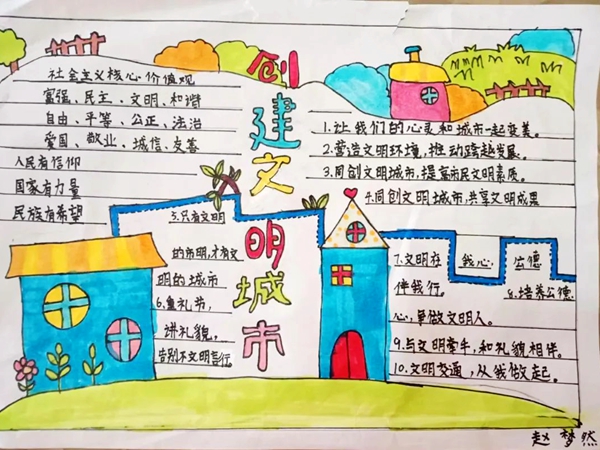 创建文明城市
社会主义核心价值观
富强、民主、文明、和谐
自由、平等、公正、法治
爱国、敬业、诚信、友善
人民有信仰
国家有力量
民族有希望
1.让我们的心灵和城市一起变美。
2.营造文明环境,推动跨越发展。
3.同创文明城市,提高市民文明素质。
4.同创文明城市,共享文明成果
5.只有文明
的市明,才有文
明的城市
6.重礼节,
讲礼貌,
告别不文明言行。
7.文明在我心,公德
伴我行。
8.培养公德
心,争做文明人。
9.与文明牵手,和礼貌相伴。
10.文明交通,从我做起。
赵梦然